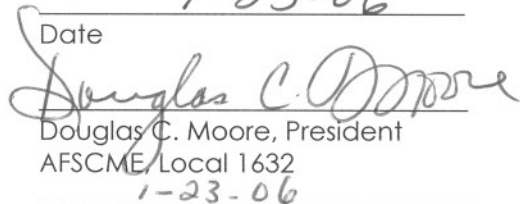 1-23-06
Date
Douglas C. Moore
Douglas C. Moore, President
AFSCME, Local 1632
1-23-06